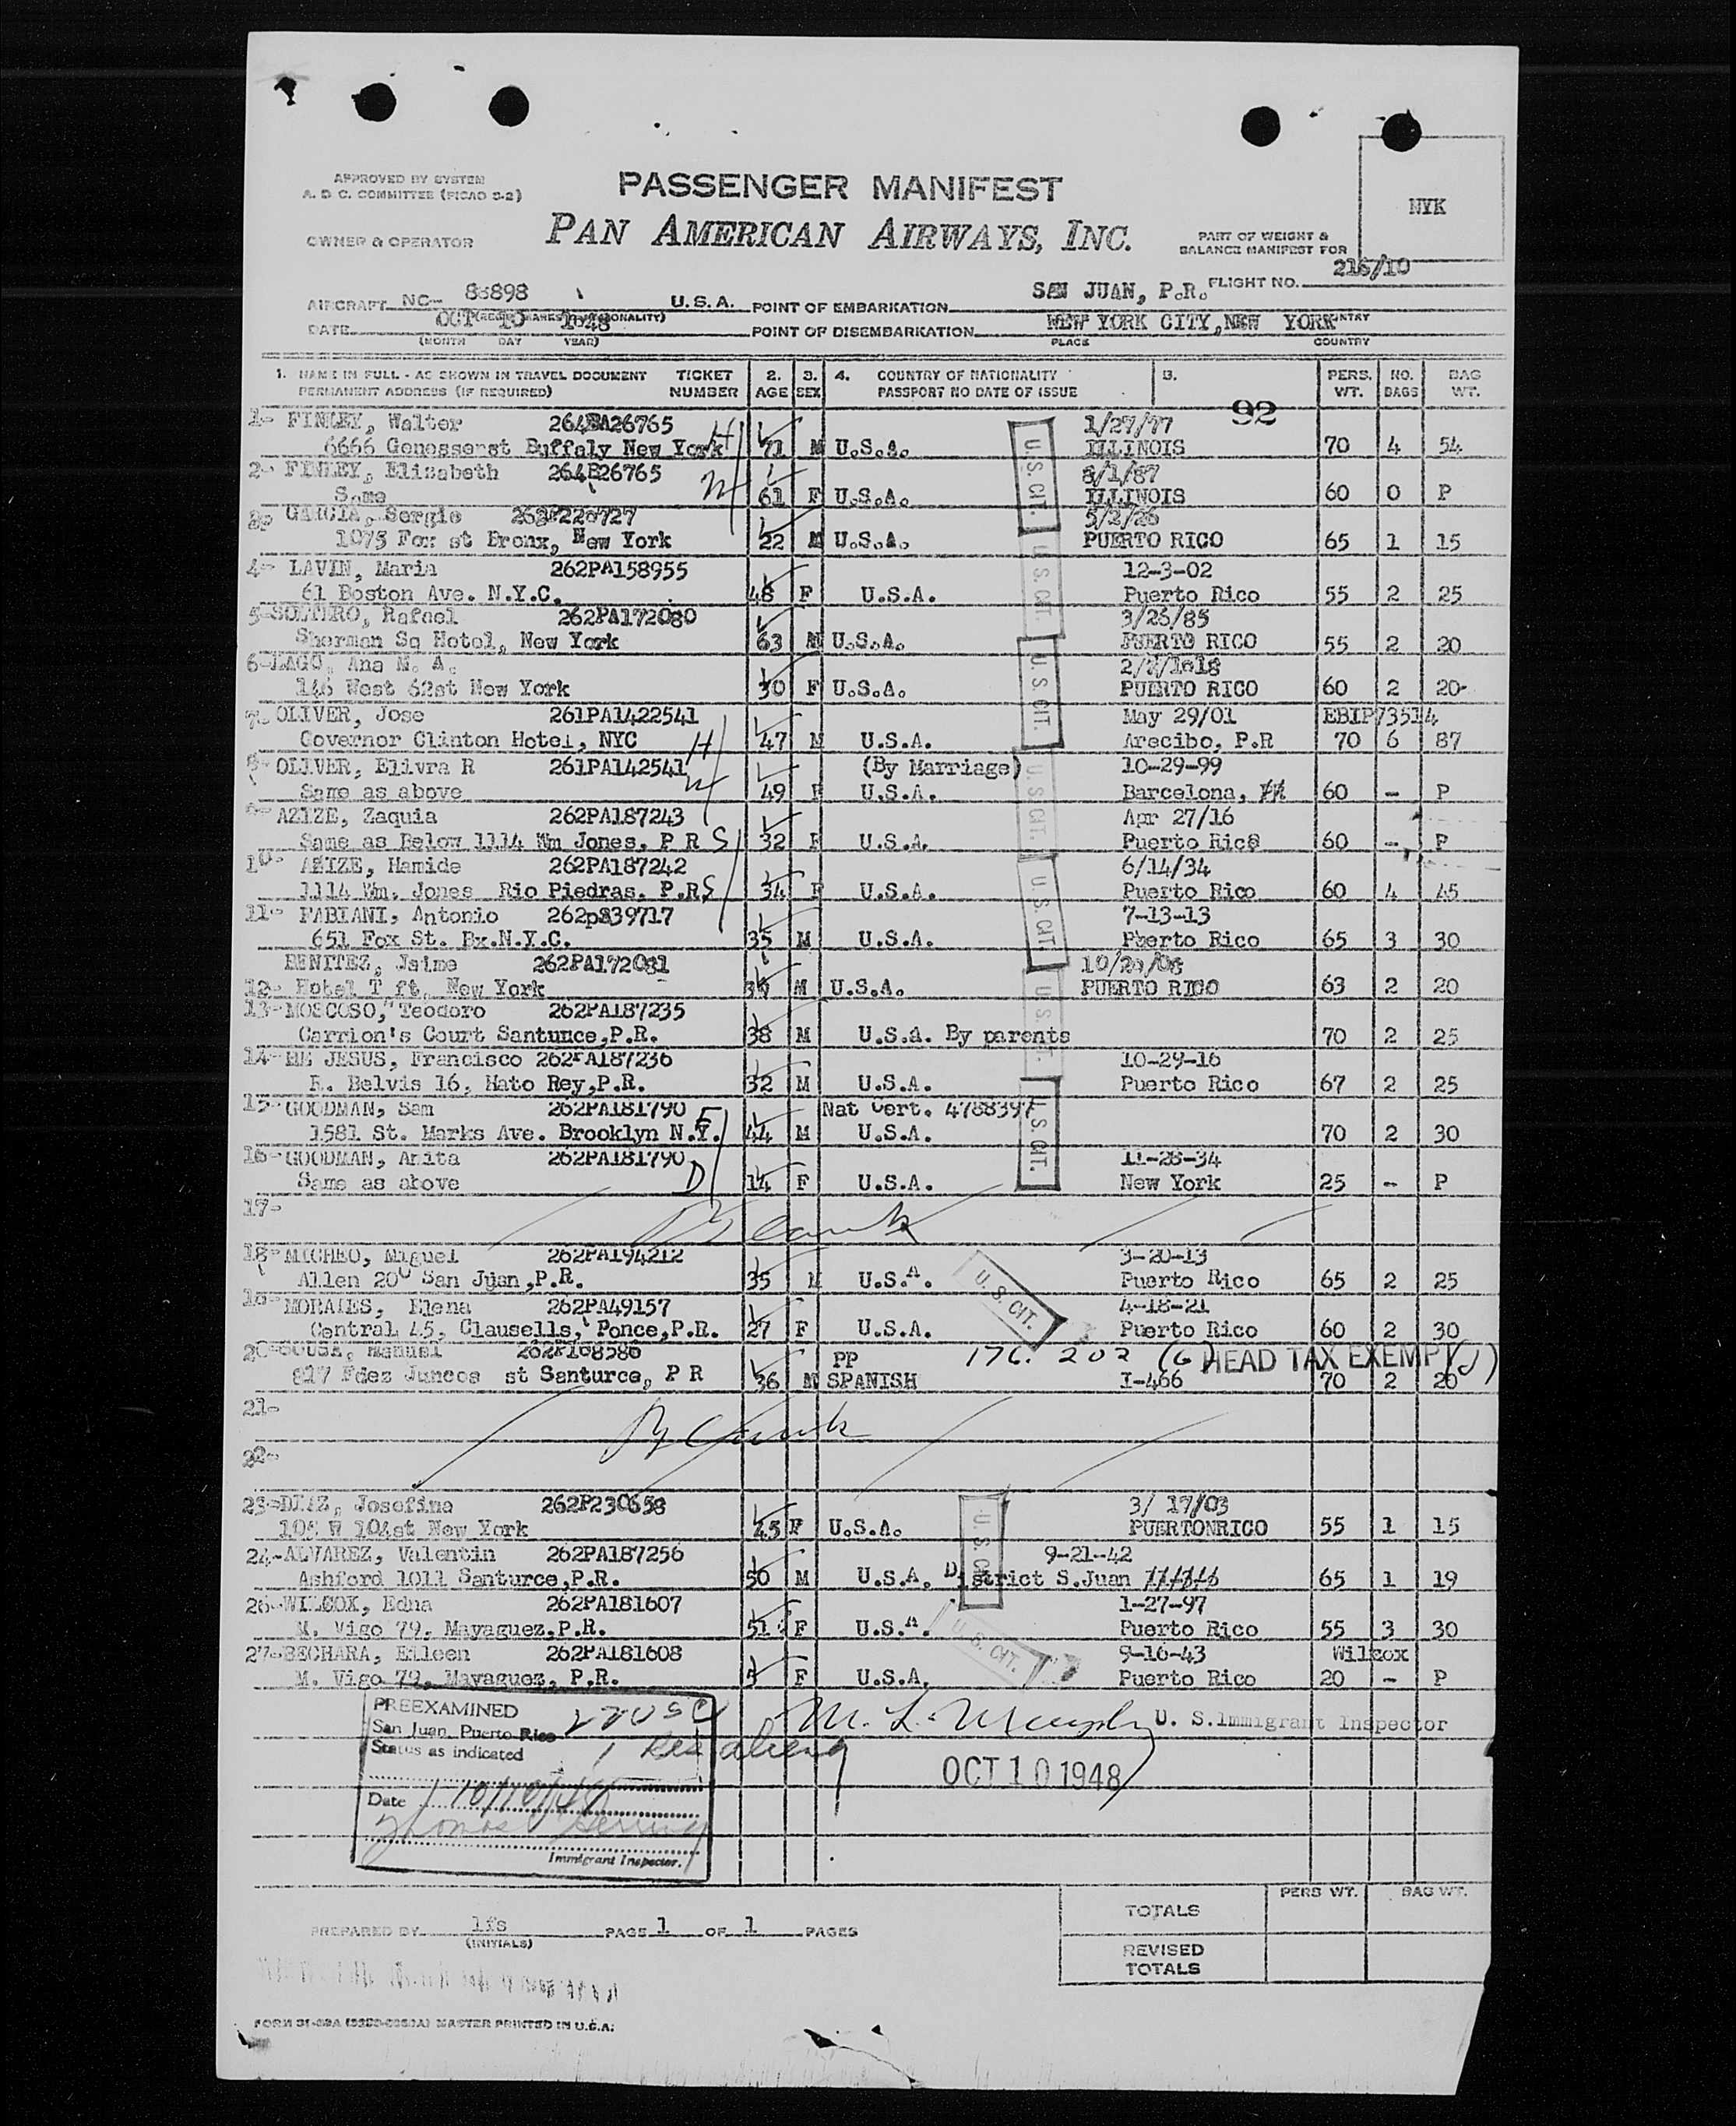 APPROVED BY SYSTEM
A. D. C. COMMITTEE (FICAO S-2)
OWNER & OPERATOR
PASSENGER MANIFEST
PAN AMERICAN AIRWAYS, INC.
NYK
PART OF WEIGHT &
BALANCE MANIFEST FOR
FLIGHT NO. 216/10
AIRCRAFT NC- 88898 U.S.A. POINT OF EMBARKATION SAN JUAN, P.R.
DATE OCT 10 1948 POINT OF DISEMBARKATION NEW YORK CITY, NEW YORK
(MONTH DAY YEAR) PLACE COUNTRY
1. NAME IN FULL - AS SHOWN IN TRAVEL DOCUMENT TICKET 2. 3. 4. COUNTRY OF NATIONALITY 5. PERS. NO. BAG
PERMANENT ADDRESS (IF REQUIRED) NUMBER AGE SEX PASSPORT NO DATE OF ISSUE WT. BAGS WT.
92
1- FINLEY, Walter 264BA26765 1/27/77
6666 Genesserst Buffaly New York H 71 M U.S.A. ILLINOIS 70 4 54
2- FINLEY, Elizabeth 264B26765 8/1/87
Same W 61 F U.S.A. ILLINOIS 60 0 P
3- GARCIA, Sergio 5/2/26
1075 Fox st Bronx, New York 22 M U.S.A. PUERTO RICO 65 1 15
4- LAVIN, Maria 262PA158955 12-3-02
61 Boston Ave. N.Y.C. 48 F U.S.A. Puerto Rico 55 2 25
5- Rafael 262PA172080 3/26/85
Sherman Sq Hotel, New York 63 M U.S.A. PUERTO RICO 55 2 20
6-LAGO, Ana M. A.
146 West 62st New York 30 F U.S.A. PUERTO RICO 60 2 20-
7- OLIVER, Jose 261PA1422541 May 29/01 EBIP73514
Governor Clinton Hotel, NYC H 47 M U.S.A. Arecibo, P.R 70 6 87
8- OLIVER, Elivra R 261PA142541 (By Marriage) 10-29-99
Same as above W 49 F U.S.A. Barcelona, 60 - P
9- AZIZE, Zaquia 262PA187243 Apr 27/16
Same as Below 1114 Wm Jones, P R S 32 F U.S.A. Puerto Rico 60 - P
10- AZIZE, Hamide 262PA187242 6/14/34
1114 Wm. Jones Rio Piedras. P.R S 34 F U.S.A. Puerto Rico 60 4 45
11- FABIANI, Antonio 262pa39717 7-13-13
651 Fox St. Bx.N.Y.C. 35 M U.S.A. Puerto Rico 65 3 30
BENITEZ, Jaime 262PA172081
12- Hotel T ft, New York M U.S.A. PUERTO RICO 63 2 20
13-MOSCOSO, Teodoro 262PA187235
Carrion's Court Santunce,P.R. 38 M U.S.A. By parents 70 2 25
14- DE JESUS, Francisco 262PA187236 10-29-16
R. Belvis 16, Hato Rey,P.R. 32 M U.S.A. Puerto Rico 67 2 25
15- GOODMAN, Sam 262PA181790 Nat Cert. 4788397
1581 St. Marks Ave. Brooklyn N.Y. F 44 M U.S.A. 70 2 30
16- GOODMAN, Anita 262PA181790 11-28-34
Same as above D 14 F U.S.A. New York 25 - P
17-
18- MICHEO, Miguel 262PA194212 3-20-13
Allen 200 San Juan,P.R. 35 M U.S.A. Puerto Rico 65 2 25
19- MORALES, Elena 262PA49157 4-18-21
Central 45, Clausells, Ponce,P.R. 27 F U.S.A. Puerto Rico 60 2 30
20-SOUSA, Manuel 262P168586 PP 176. 202 (G) HEAD TAX EXEMPT (J)
817 Fdez Juncos st Santurce, P R 36 M SPANISH I-466 70 2 20
21-
22-
23-DIAZ, Josefina 262P230658 3/ 17/03
W 104st New York 45 F U.S.A. PUERTONRICO 55 1 15
24-ALVAREZ, Valentin 262PA187256 9-21-42
Ashford 1011 Santurce,P.R. 50 M U.S.A. District S.Juan 65 1 19
26-WILCOX, Edna 262PA181607 1-27-97
M. Vigo 79, Mayaguez,P.R. 51 F U.S.A. Puerto Rico 55 3 30
27-BECHARA, Eileen 262PA181608 9-16-43 Wilcox
M. Vigo 79, Mayaguez, P.R. 5 F U.S.A. Puerto Rico 20 - P
U.S. CIT.
U.S. CIT.
U.S. CIT.
U.S. CIT.
U.S. CIT.
U.S. CIT.
U.S. CIT.
U.S. CIT.
U.S. CIT.
U.S. CIT.
PREEXAMINED
San Juan, Puerto Rico 22 USC
Status as indicated 1 Res alien
Date 10/10/48
Thomas
Immigrant Inspector.
M. L. Murphy U. S. Immigrant Inspector
OCT 10 1948
PREPARED BY lfs PAGE 1 OF 1 PAGES
(INITIALS)
PERS WT. BAG WT.
TOTALS
REVISED
TOTALS
MASTER PRINTED IN U.S.A.